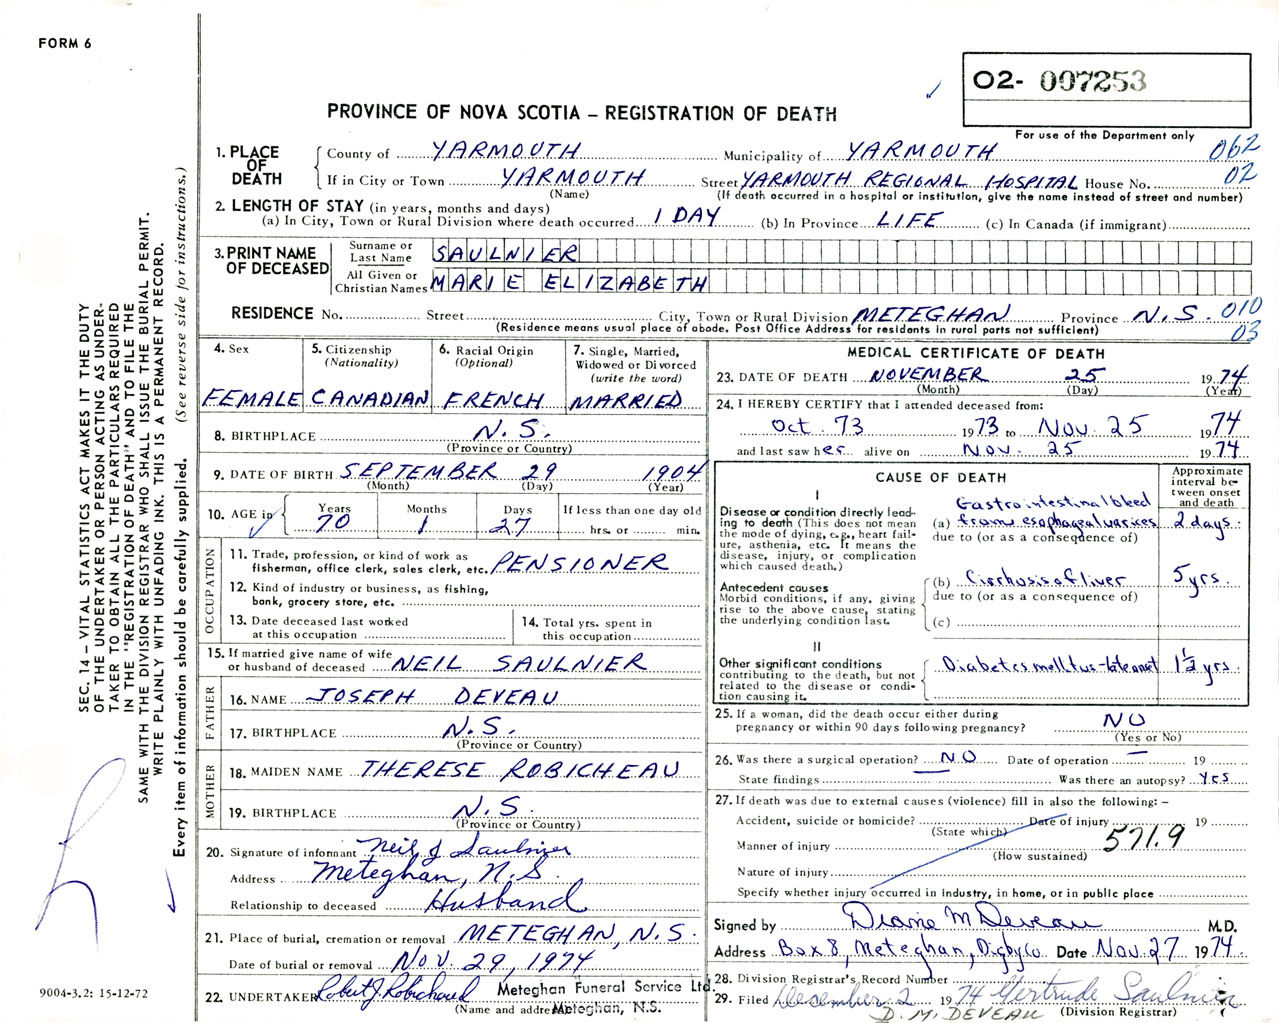 FORM 6
O2- 007253
PROVINCE OF NOVA SCOTIA – REGISTRATION OF DEATH
For use of the Department only
1. PLACE OF DEATH
County of YARMOUTH Municipality of YARMOUTH 062
If in City or Town YARMOUTH Street YARMOUTH REGIONAL HOSPITAL House No. 02
(Name) (If death occurred in a hospital or institution, give the name instead of street and number)
2. LENGTH OF STAY (in years, months and days)
(a) In City, Town or Rural Division where death occurred 1 DAY (b) In Province LIFE (c) In Canada (if immigrant)
3. PRINT NAME OF DECEASED
Surname or Last Name SAULNIER
All Given or Christian Names MARIE ELIZABETH
RESIDENCE No. Street City, Town or Rural Division METEGHAN Province N.S. 010
(Residence means usual place of abode. Post Office Address for residents in rural parts not sufficient) 03
4. Sex FEMALE
5. Citizenship (Nationality) CANADIAN
6. Racial Origin (Optional) FRENCH
7. Single, Married, Widowed or Divorced (write the word) MARRIED
8. BIRTHPLACE N.S.
(Province or Country)
9. DATE OF BIRTH SEPTEMBER 29 1904
(Month) (Day) (Year)
10. AGE in Years Months Days If less than one day old
70 1 27 hrs. or min.
OCCUPATION
11. Trade, profession, or kind of work as fisherman, office clerk, sales clerk, etc. PENSIONER
12. Kind of industry or business, as fishing, bank, grocery store, etc.
13. Date deceased last worked at this occupation
14. Total yrs. spent in this occupation
15. If married give name of wife or husband of deceased NEIL SAULNIER
FATHER
16. NAME JOSEPH DEVEAU
17. BIRTHPLACE N.S.
(Province or Country)
MOTHER
18. MAIDEN NAME THERESE ROBICHEAU
19. BIRTHPLACE N.S.
(Province or Country)
20. Signature of informant Neil J Saulnier
Address Meteghan, N.S.
Relationship to deceased Husband
21. Place of burial, cremation or removal METEGHAN, N.S.
Date of burial or removal NOV. 29, 1974
22. UNDERTAKER Robert J. Robichaud Meteghan Funeral Service Ltd.
(Name and address) Meteghan, N.S.
MEDICAL CERTIFICATE OF DEATH
23. DATE OF DEATH NOVEMBER 25 1974
(Month) (Day) (Year)
24. I HEREBY CERTIFY that I attended deceased from:
Oct. 73 1973 to Nov. 25 1974
and last saw her alive on Nov. 25 1974
CAUSE OF DEATH
Approximate interval between onset and death
I
Disease or condition directly leading to death (This does not mean the mode of dying, e.g., heart failure, asthenia, etc. It means the disease, injury, or complication which caused death.)
(a) Gastrointestinal bleed from esophageal varices 2 days
due to (or as a consequence of)
Antecedent causes
Morbid conditions, if any, giving rise to the above cause, stating the underlying condition last.
(b) Cirrhosis of liver 5 yrs.
due to (or as a consequence of)
(c)
II
Other significant conditions contributing to the death, but not related to the disease or condition causing it.
Diabetes mellitus - late onset 1½ yrs.
25. If a woman, did the death occur either during pregnancy or within 90 days following pregnancy? NO
(Yes or No)
26. Was there a surgical operation? NO Date of operation — 19
State findings Was there an autopsy? Yes
27. If death was due to external causes (violence) fill in also the following: –
Accident, suicide or homicide? Date of injury 19
(State which)
Manner of injury 571.9
(How sustained)
Nature of injury
Specify whether injury occurred in industry, in home, or in public place
Signed by Diane M Deveau M.D.
Address Box 8, Meteghan, Digby Co Date Nov. 27 1974
28. Division Registrar's Record Number
29. Filed December 2 1974 Gertrude Saulnier
D. M. DEVEAU (Division Registrar)
SEC. 14 – VITAL STATISTICS ACT MAKES IT THE DUTY
OF THE UNDERTAKER OR PERSON ACTING AS UNDER-
TAKER TO OBTAIN ALL THE PARTICULARS REQUIRED
IN THE "REGISTRATION OF DEATH" AND TO FILE THE
SAME WITH THE DIVISION REGISTRAR WHO SHALL ISSUE THE BURIAL PERMIT.
WRITE PLAINLY WITH UNFADING INK. THIS IS A PERMANENT RECORD.
Every item of information should be carefully supplied. (See reverse side for instructions.)
9004-3.2: 15-12-72